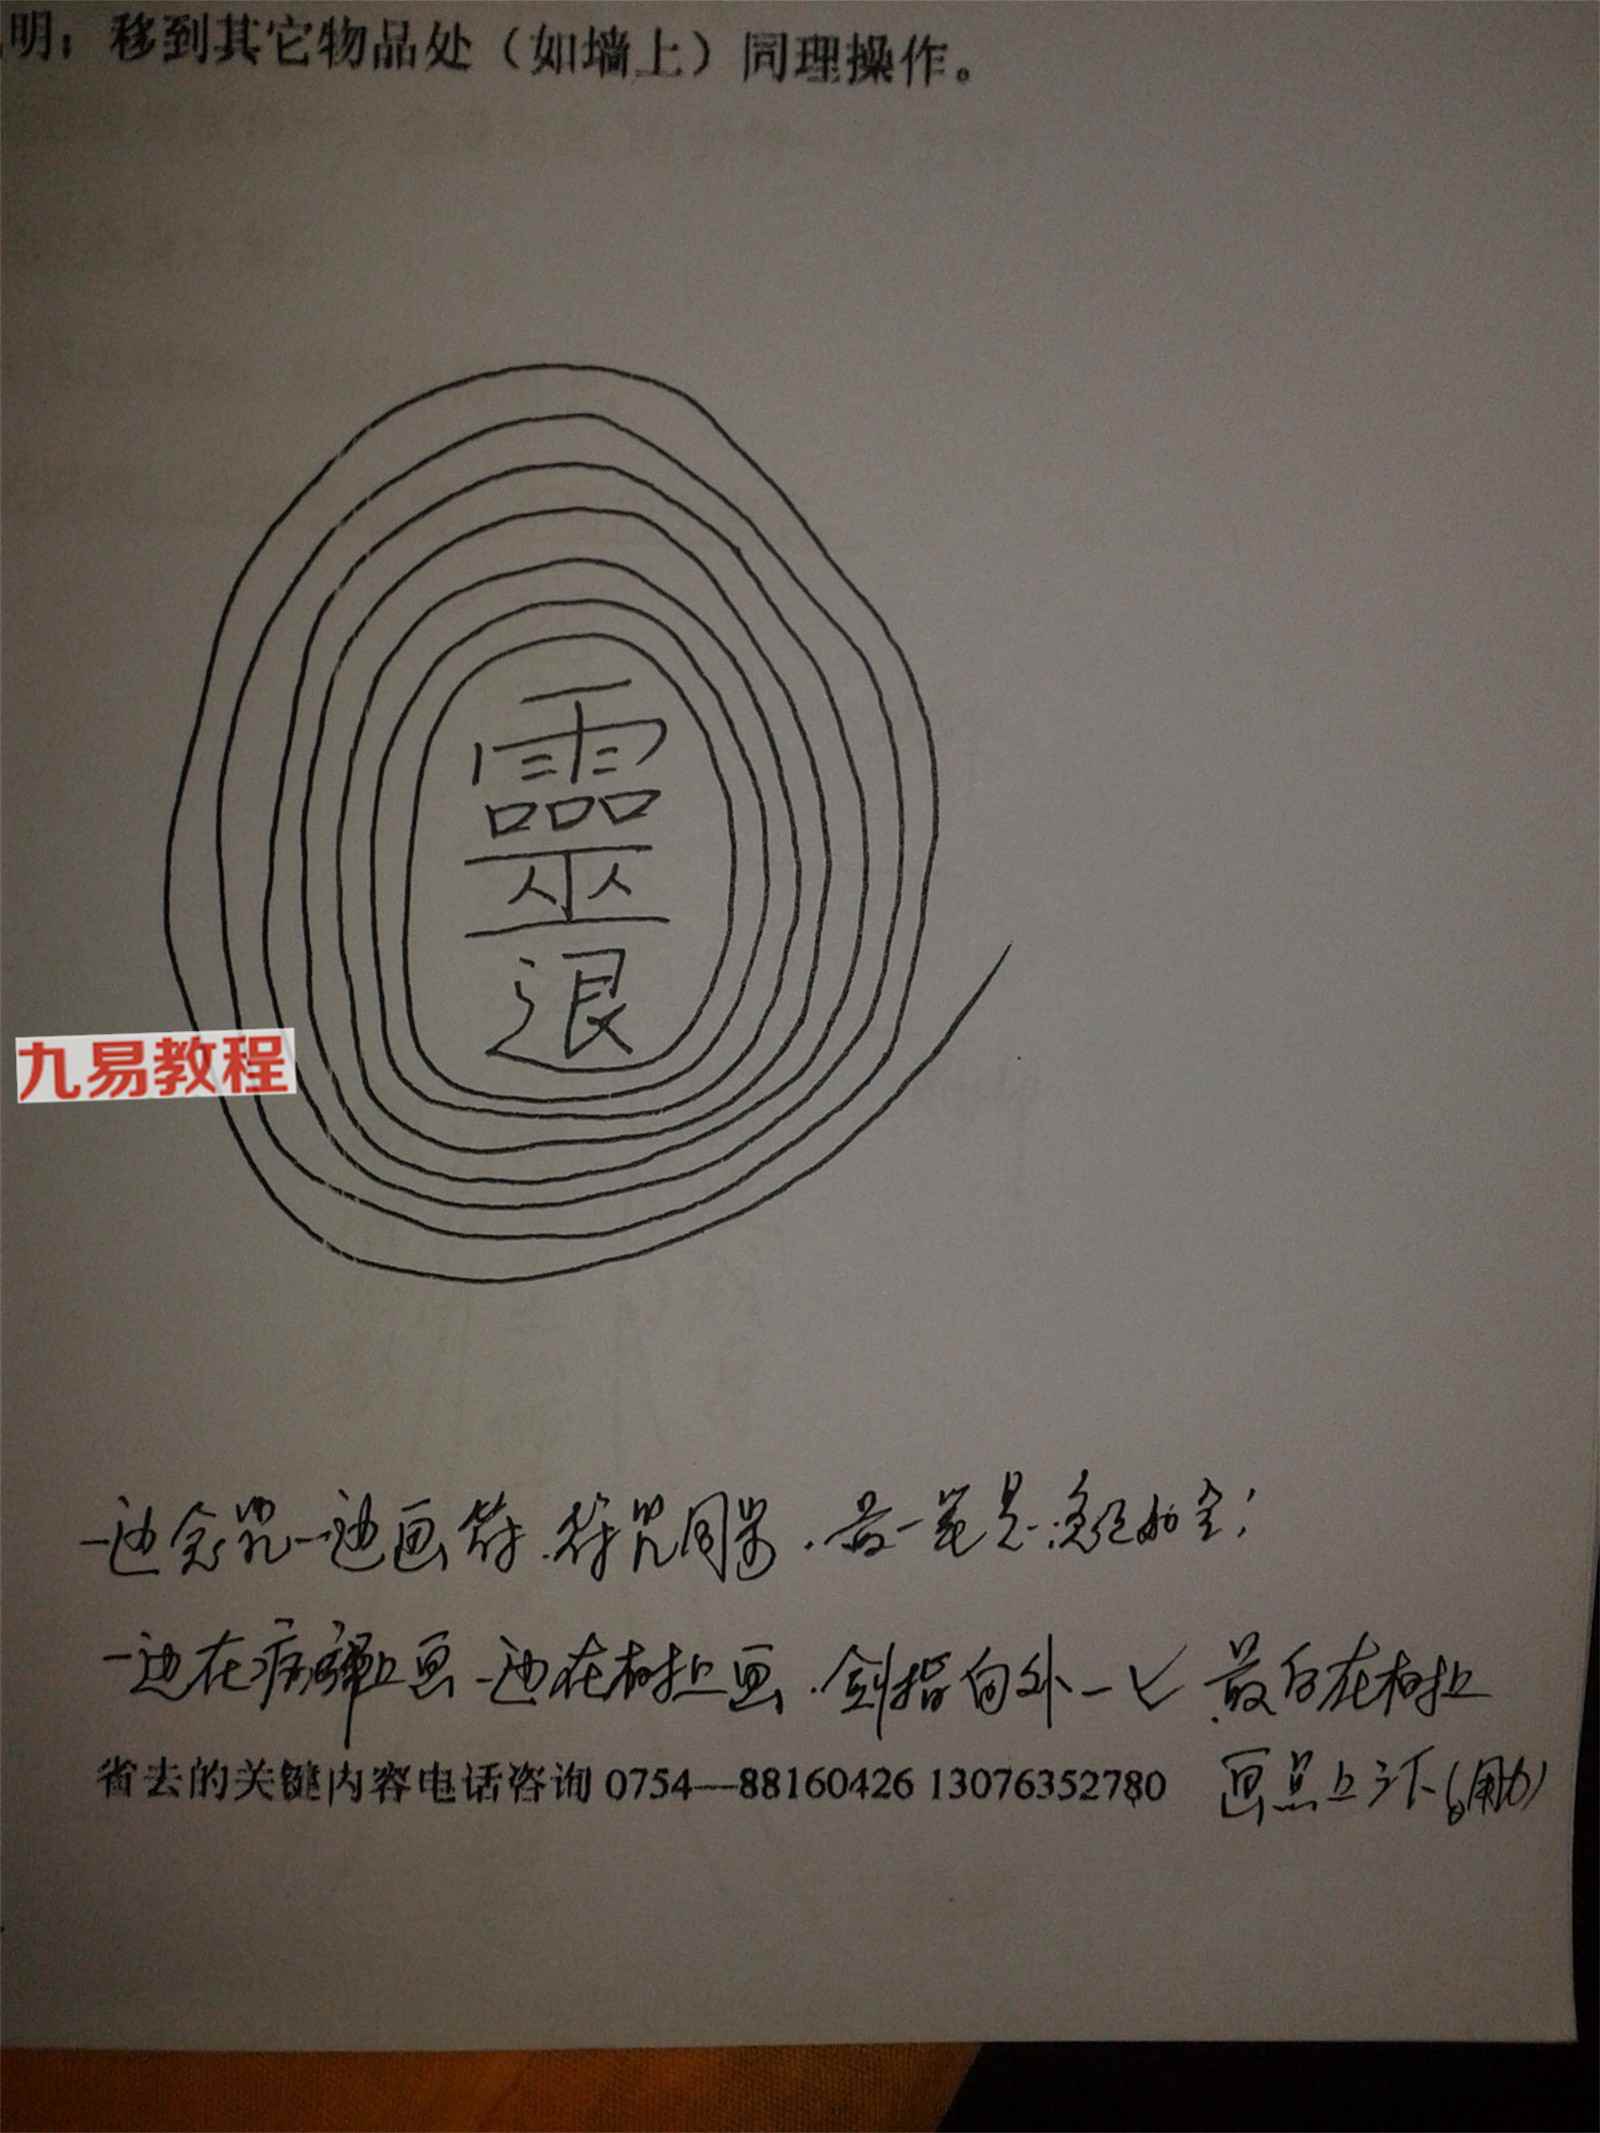 明：移到其它物品处（如墙上）同理操作。
靈
退
九易教程
一边念咒一边画符.符咒同步.最一笔是.急急如令；
一边在病灶上画一边在树上画.剑指向外一 最后在树上
省去的关键内容电话咨询 0754—88160426 13076352780 画点上 (用力)